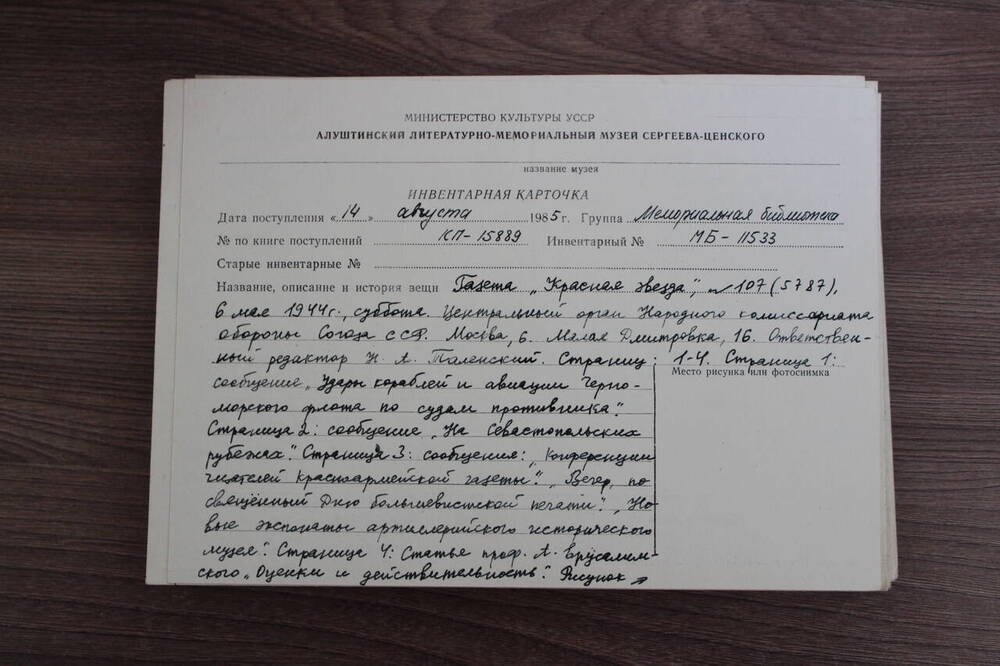 МИНИСТЕРСТВО КУЛЬТУРЫ УССР
АЛУШТИНСКИЙ ЛИТЕРАТУРНО-МЕМОРИАЛЬНЫЙ МУЗЕЙ СЕРГЕЕВА-ЦЕНСКОГО
название музея
ИНВЕНТАРНАЯ КАРТОЧКА
Дата поступления «14» августа 1985 г. Группа Мемориальная библиотека
№ по книге поступлений КП-15889 Инвентарный № МБ-11533
Старые инвентарные №
Название, описание и история вещи Газета „Красная звезда", № 107 (5787),
6 мая 1944г., суббота. Центральный орган Народного комиссариата
обороны Союза ССР. Москва, 6. Малая Дмитровка, 16. Ответствен-
ный редактор Н. А. Таленский. Страниц: 1-4. Страница 1:
Место рисунка или фотоснимка
сообщение „Удары кораблей и авиации Черно-
морского флота по судам противника".
Страница 2: сообщение „На Севастопольских
рубежах". Страница 3: сообщения: „Конференции
читателей красноармейской газеты". „Вечер, по-
священный Дню большевистской печати". „Но-
вые экспонаты артиллерийского исторического
музея". Страница 4: Статья проф. А. Ерусалим-
ского „Оценки и действительность". Рисунок →